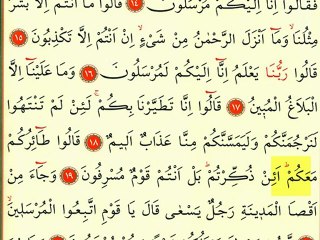 فَقَالُٓوا اِنَّٓا اِلَيْكُمْ مُرْسَلُونَ ﴿١٤﴾ قَالُوا مَٓا اَنْتُمْ اِلَّا بَشَرٌ
مِثْلُنَاۙ وَمَٓا اَنْزَلَ الرَّحْمٰنُ مِنْ شَيْءٍۙ اِنْ اَنْتُمْ اِلَّا تَكْذِبُونَ ﴿١٥﴾
قَالُوا رَبُّنَا يَعْلَمُ اِنَّٓا اِلَيْكُمْ لَمُرْسَلُونَ ﴿١٦﴾ وَمَا عَلَيْنَٓا اِلَّا
الْبَلَاغُ الْمُبِينُ ﴿١٧﴾ قَالُٓوا اِنَّا تَطَيَّرْنَا بِكُمْۚ لَئِنْ لَمْ تَنْتَهُوا
لَنَرْجُمَنَّكُمْ وَلَيَمَسَّنَّكُمْ مِنَّا عَذَابٌ اَلِيمٌ ﴿١٨﴾ قَالُوا طَٓائِرُكُمْ
مَعَكُمْۜ اَئِنْ ذُكِّرْتُمْۜ بَلْ اَنْتُمْ قَوْمٌ مُسْرِفُونَ ﴿١٩﴾ وَجَٓاءَ مِنْ
اَقْصَا الْمَدِينَةِ رَجُلٌ يَسْعٰى قَالَ يَا قَوْمِ اتَّبِعُوا الْمُرْسَلِينَۙ